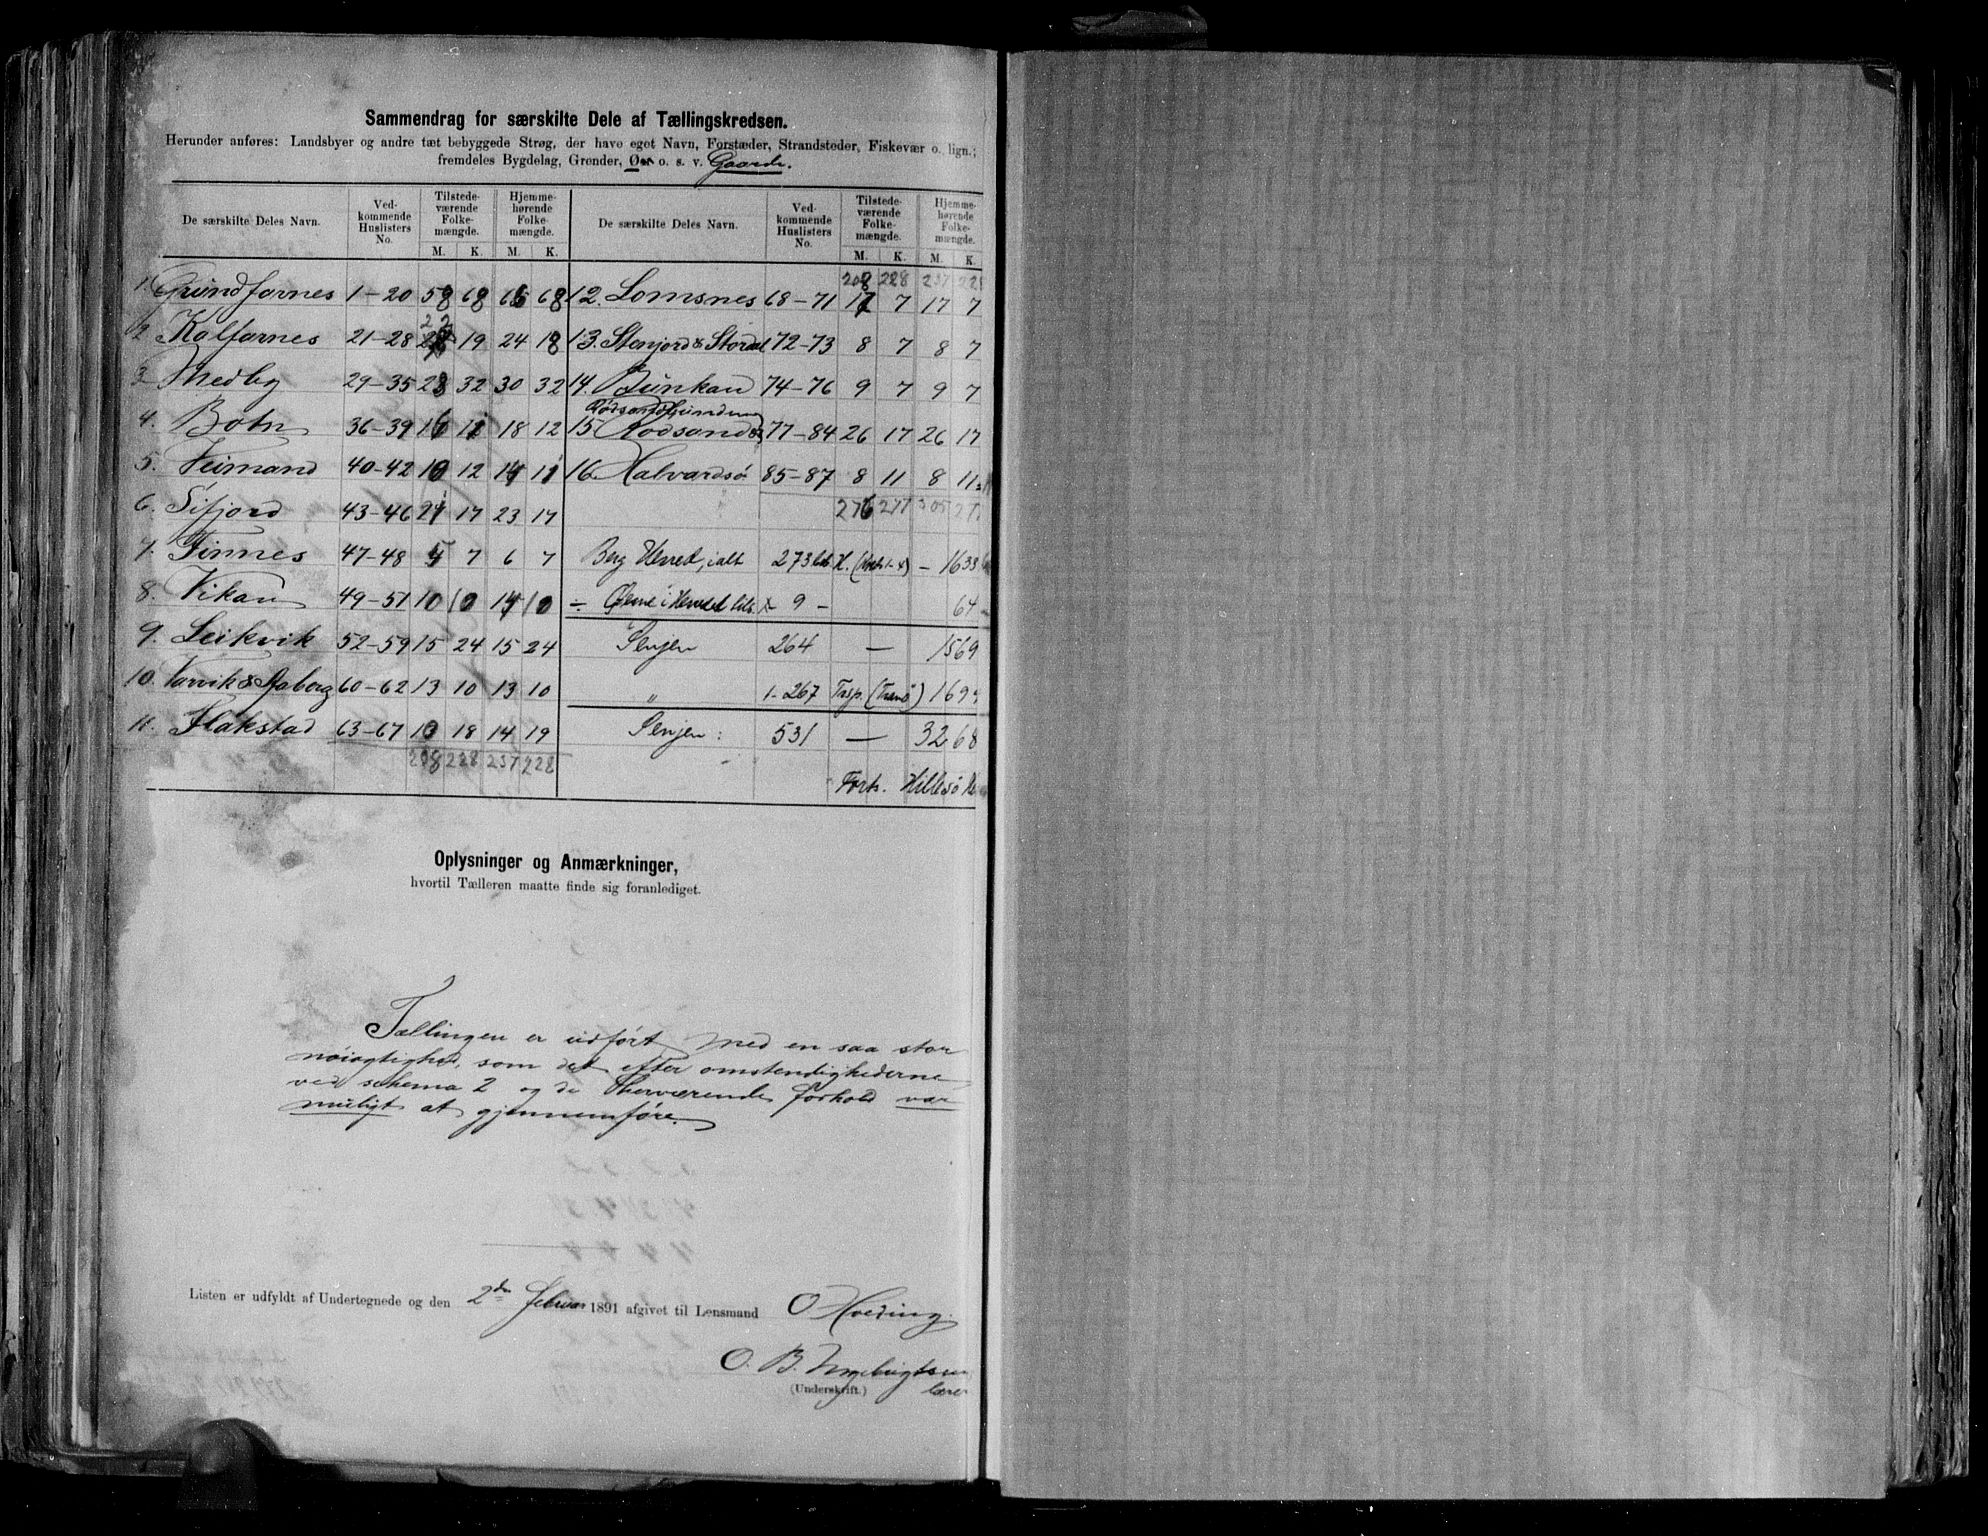 Sammendrag for særskilte Dele af Tællingskredsen.
Herunder anføres: Landsbyer og andre tæt bebyggede Strøg, der have eget Navn, Forstæder, Strandsteder, Fiskevær o. lign.;
fremdeles Bygdelag, Grender, Øer o. s. v. Gaarde.
De særskilte Deles Navn. Ved-kommende Huslisters No. Tilstede-værende Folke-mængde. Hjemme-hørende Folke-mængde. De særskilte Deles Navn. Ved-kommende Huslisters No. Tilstede-værende Folke-mængde. Hjemme-hørende Folke-mængde.
M. K. M. K. M. K. M. K.
208 228 237 228
1. Grundfarnes 1-20 58 68 66 68 12. Lomsnes 68-71 17 7 17 7
2 Kalfarnes 21-28 22 19 24 18 13. Stenjord & Stordal 72-73 8 7 8 7
3 Medby 29-35 28 32 30 32 14. Bunkan 74-76 9 7 9 7
4. Botn 36-39 16 11 18 12 15 Rodsand 77-84 26 17 26 17
5. Veimand 40-42 10 12 14 11 16. Halvardsø 85-87 8 11 8 11
6. Sifjord 43-46 21 17 23 17 276 277 305 27
7. Finnes 47-48 5 7 6 7 Berg Herred, ialt 273 H. - 1633
8. Vikan 49-51 10 10 14 10 ÷ Øerne i Herredet 9 - 64
9. Leikvik 52-59 15 24 15 24 Senjen 264 — 1569
10. Varvik & Aaberg 60-62 13 10 13 10 " 1-267 Trsp. (Tranø) 169
11. Flakstad 63-67 10 18 14 19 Senjen: 531 — 3268
208 228 237 228
Forts. Hillesø
Oplysninger og Anmærkninger,
hvortil Tælleren maatte finde sig foranlediget.
Tællingen er udført med en saa stor
nøiagtighed, som det efter omstendighederne
ved schema 2 og de herværende forhold var
muligt at gjennemføre.
Listen er udfyldt af Undertegnede og den 2den Februar 1891 afgivet til Lensmand O Hveding.
O. B. Ingebrigtsen
(Underskrift.) lærer